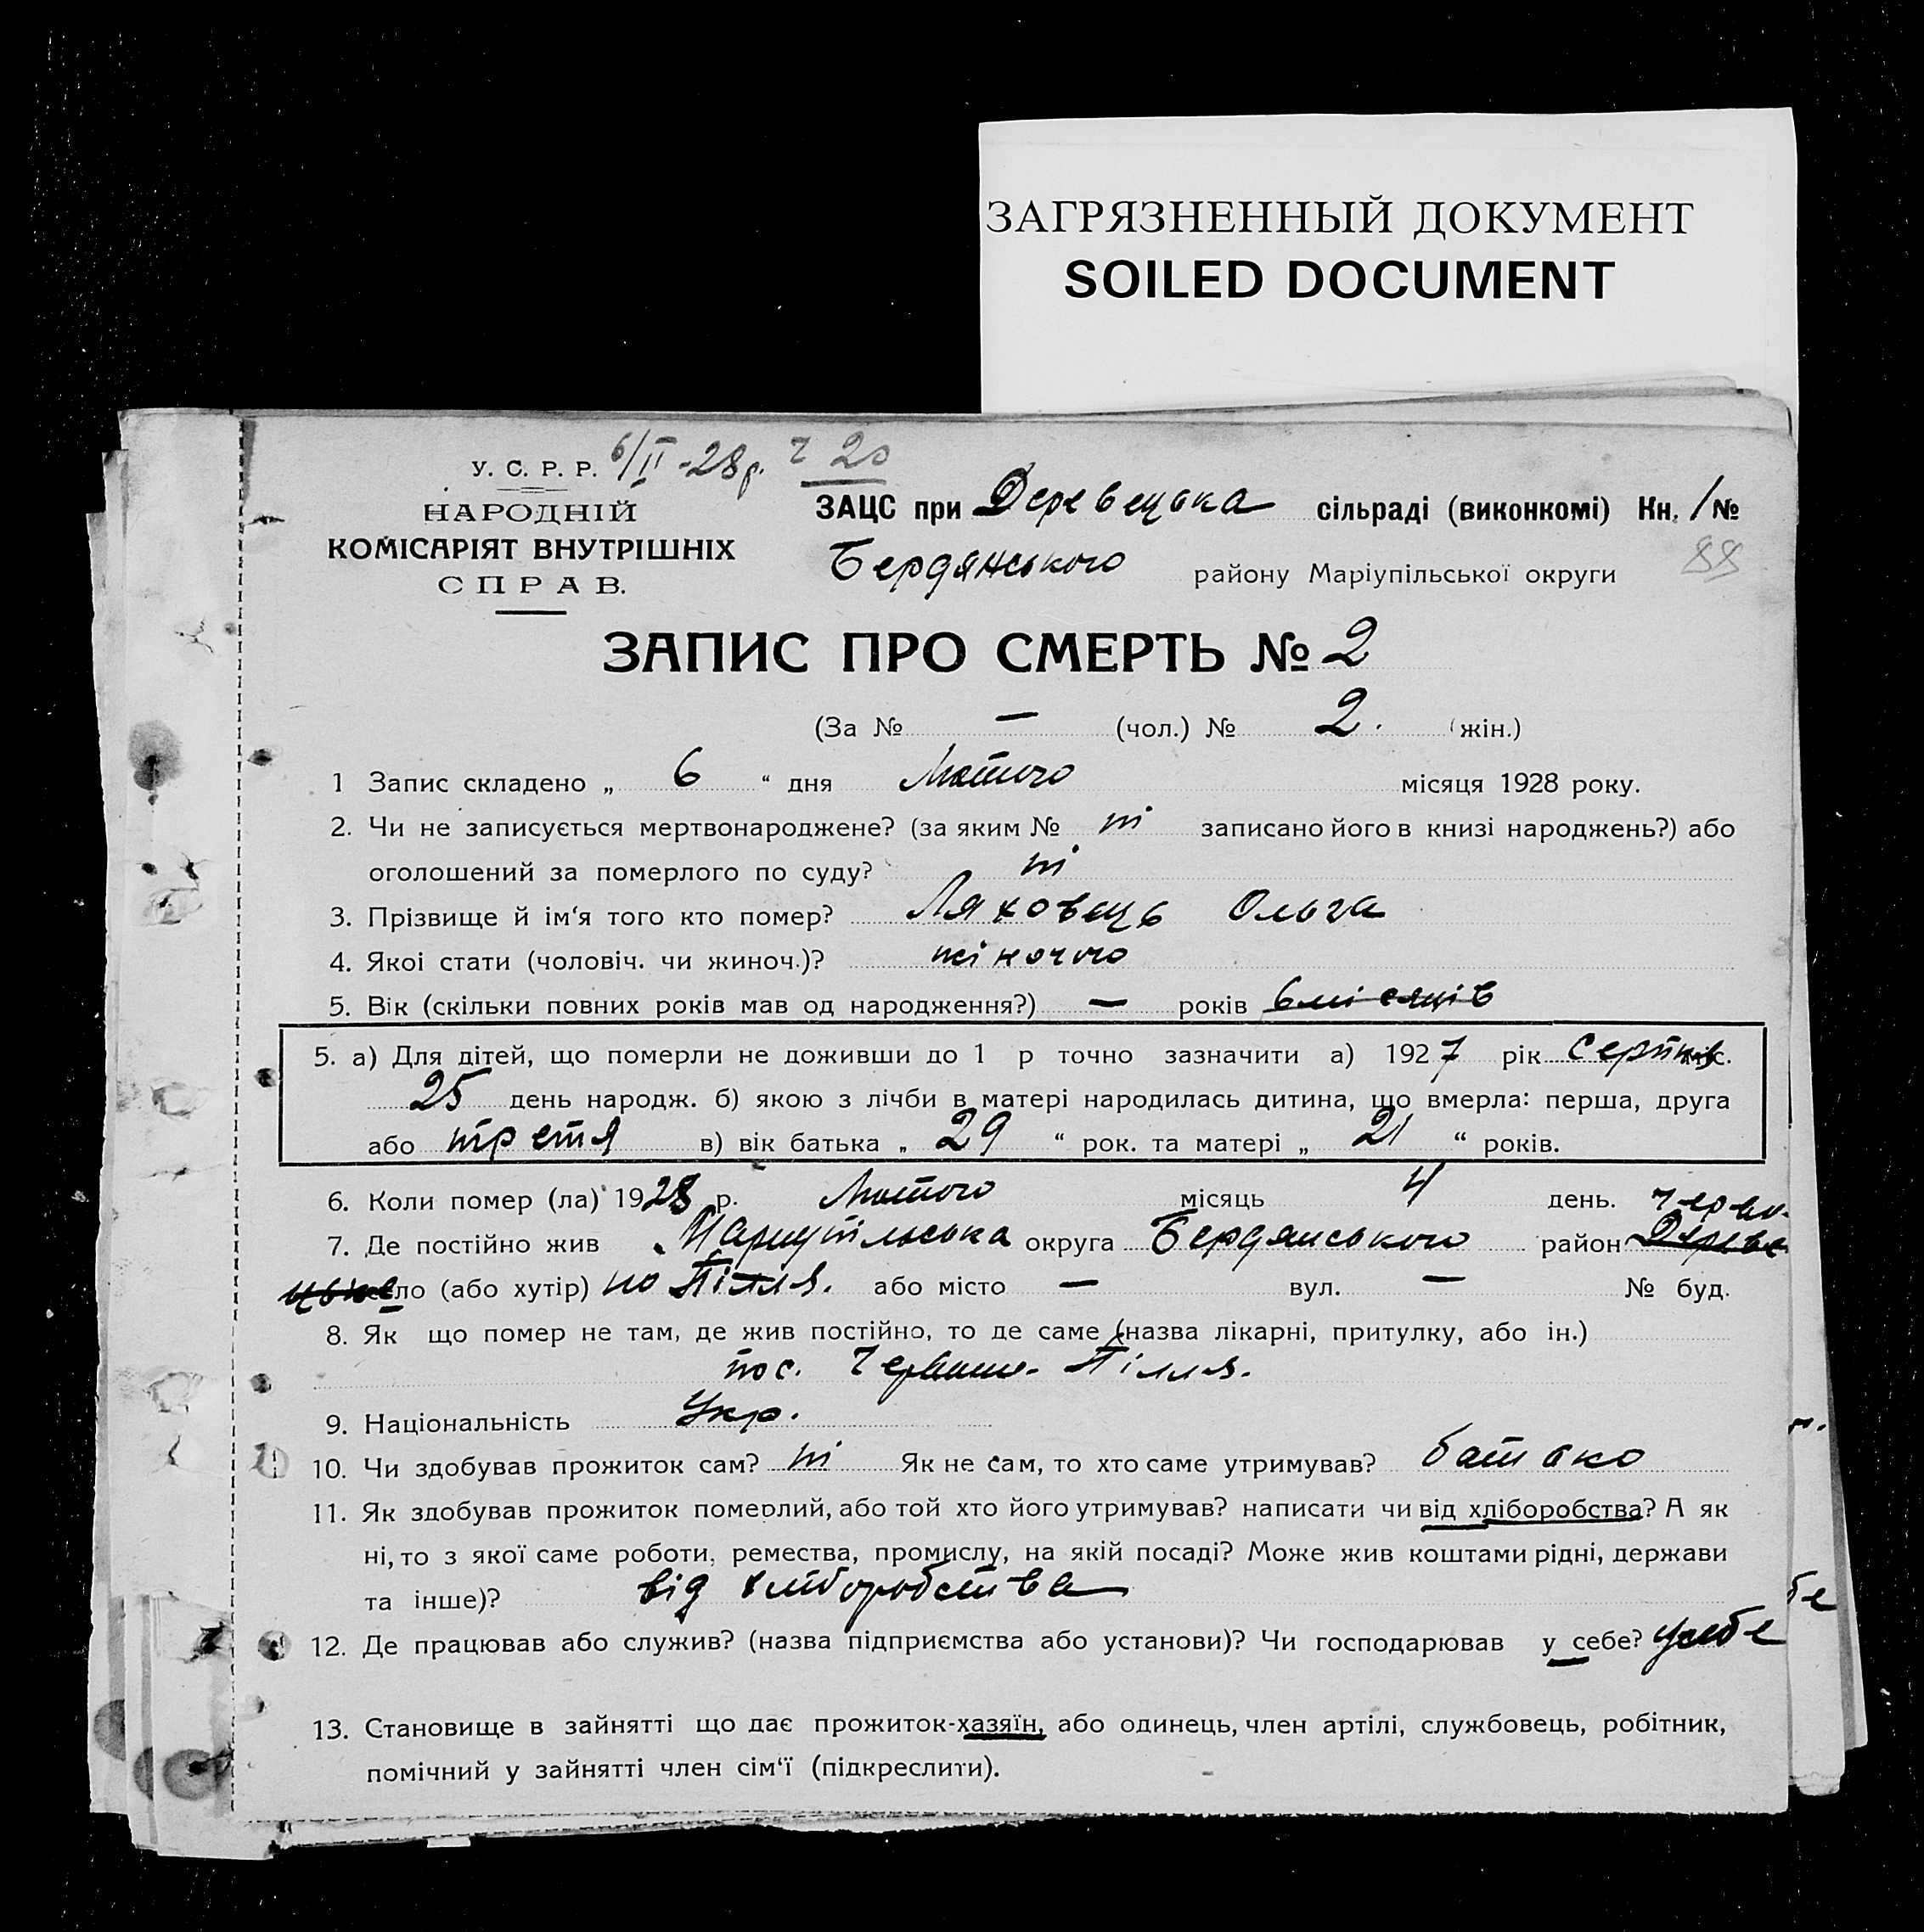 ЗАГРЯЗНЕННЫЙ ДОКУМЕНТ
SOILED DOCUMENT
6/II-28р. ч 20
У. С. Р. Р.
НАРОДНІЙ
КОМІСАРІЯТ ВНУТРІШНІХ
СПРАВ.
ЗАЦС при Деревецька сільраді (виконкомі) Кн. 1 №
Бердянського району Маріупільської округи 88
ЗАПИС ПРО СМЕРТЬ № 2
(За № — (чол.) № 2. (жін.)
1 Запис складено „ 6 “ дня Лютого місяця 1928 року.
2. Чи не записується мертвонароджене? (за яким № ні записано його в книзі народжень?) або
оголошений за померлого по суду? ні
3. Прізвище й ім‘я того кто помер? Ляховець Ольга
4. Якоі стати (чоловіч. чи жиноч.)? жіночого
5. Вік (скільки повних років мав од народження?) — років 6 місяців
5. а) Для дітей, що померли не доживши до 1 р точно зазначити а) 1927 рік Серпня міс.
25 день народж. б) якою з лічби в матері народилась дитина, що вмерла: перша, друга
або третя в) вік батька „ 29 “ рок. та матері „ 21 “ років.
6. Коли помер (ла) 1928 р. Лютого місяць 4 день.
7. Де постійно жив Маріупільська округа Бердянського район Черво-
село (або хутір) но Пілля. або місто — вул. — № буд.
8. Як що помер не там, де жив постійно, то де саме (назва лікарні, притулку, або ін.)
пос. Червоно-Пілля.
9. Національність Укр.
10. Чи здобував прожиток сам? ні Як не сам, то хто саме утримував? батько
11. Як здобував прожиток померлий, або той хто його утримував? написати чи від хліборобства? А як
ні, то з якої саме роботи, ремества, промислу, на якій посаді? Може жив коштами рідні, держави
та інше)? від хліборобства
12. Де працював або служив? (назва підприємства або установи)? Чи господарював у себе? у себе
13. Становище в зайнятті що дає прожиток-хазяїн, або одинець, член артілі, службовець, робітник,
помічний у зайнятті член сім‘ї (підкреслити).